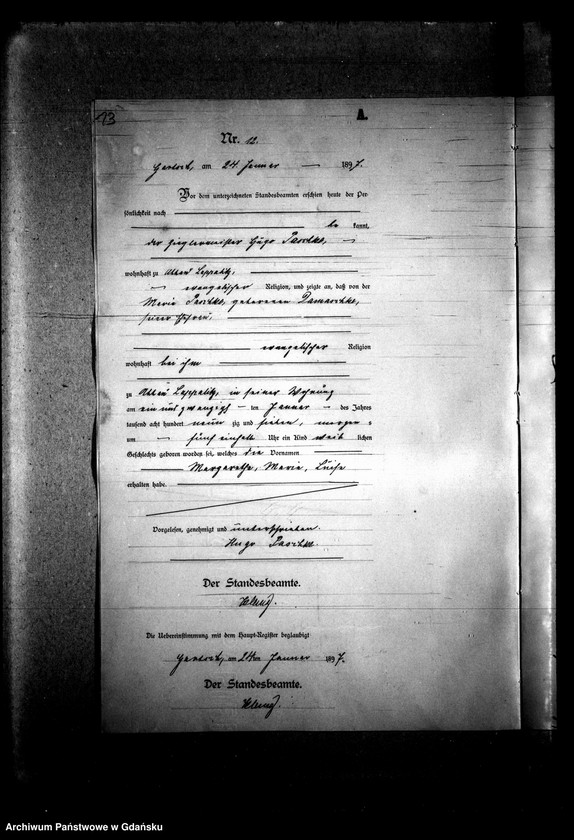 13
A.
Nr. 12.
am 24 Januar 1897.
Vor dem unterzeichneten Standesbeamten erschien heute der Per
sönlichkeit nach
be kannt,
der Zieglermeister Hugo Paschke,
wohnhaft zu Alten
evangelischer Religion, und zeigte an, daß von der
Marie Paschke, geborenen Damaschke,
seiner Ehefrau,
evangelischer Religion
wohnhaft bei ihm
zu Alten in seiner Wohnung
am ein und zwanzigsten Januar des Jahres
tausend acht hundert neun zig und sieben, morgens
um fünf einhalb Uhr ein Kind weib lichen
Geschlechts geboren worden sei, welches die Vornamen
Margarethe, Marie, Luise
erhalten habe.
Vorgelesen, genehmigt und unterschrieben.
Hugo Paschke.
Der Standesbeamte.
Die Uebereinstimmung mit dem Haupt-Register beglaubigt
am 24ten Januar 1897.
Der Standesbeamte.
Archiwum Państwowe w Gdańsku